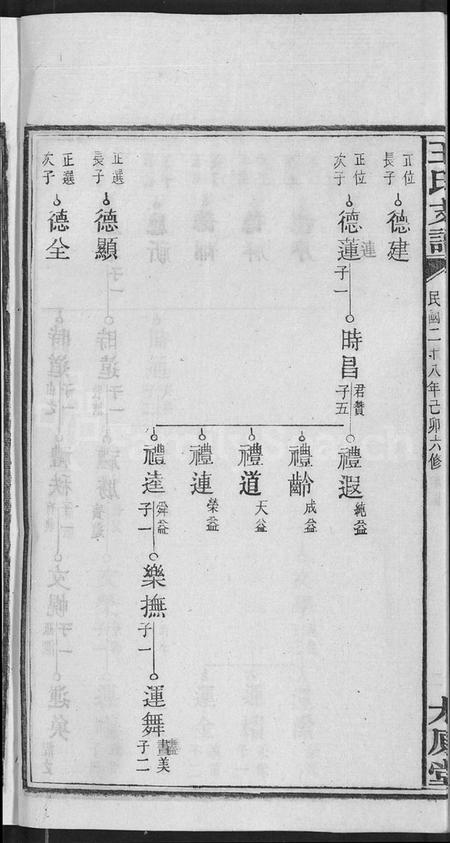 王氏支譜
民國二十八年己卯六修
大原堂
正位
長子
德建
正位
次子
德蓮
蓮
子一
時昌
君贊
子五
禮遐
純益
禮齡
成益
禮道
天益
禮連
榮益
禮逵
舜益
子一
樂撫
子一
運舞
子二
正選
長子
德顯
正選
次子
德全